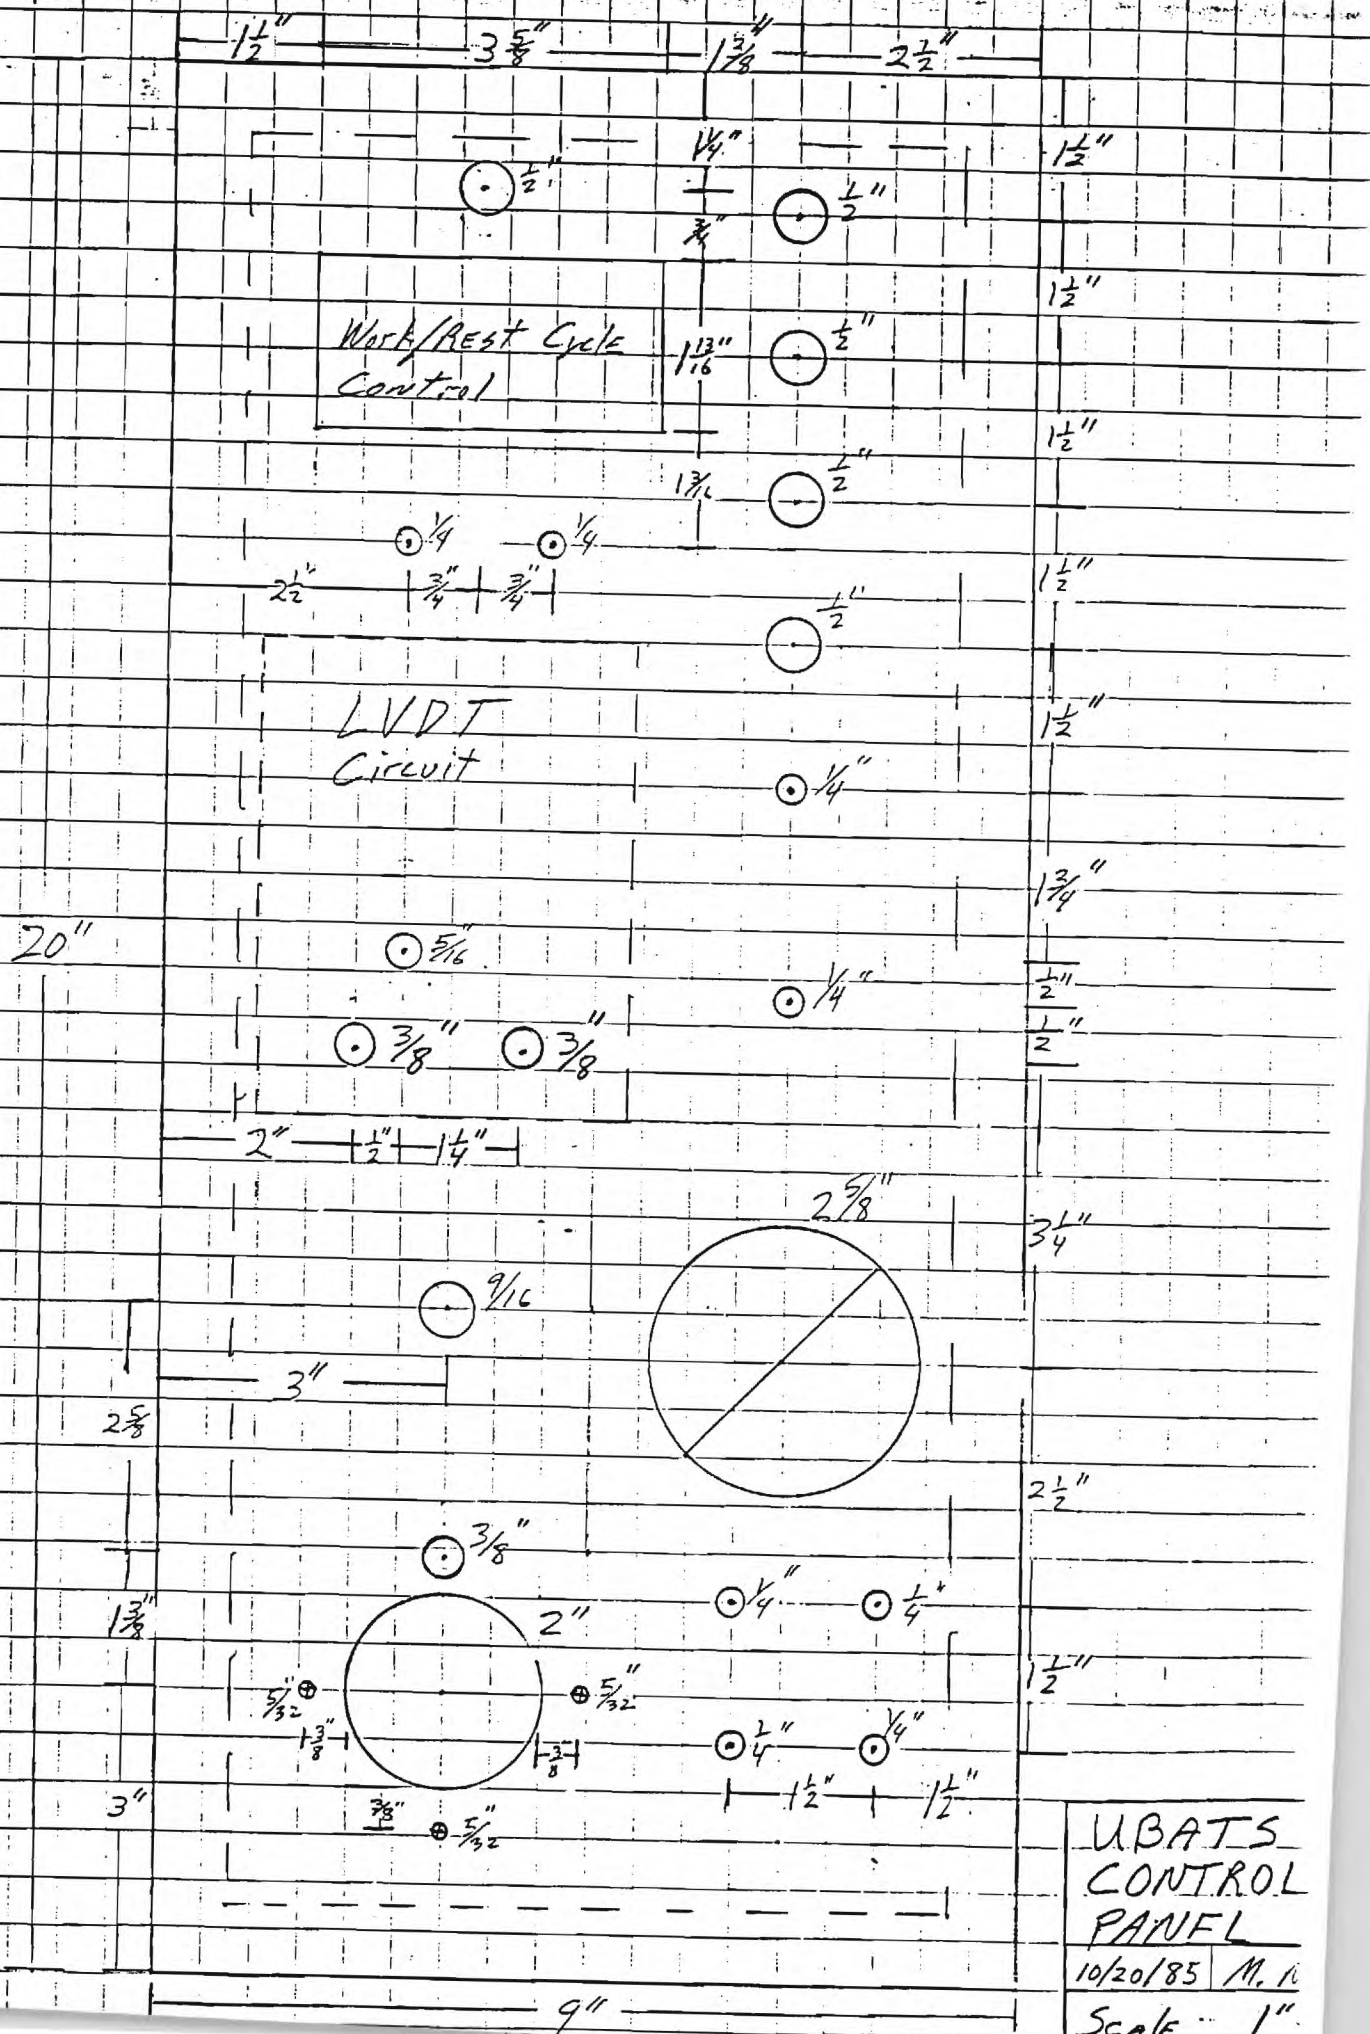 1 1/2" 3 5/8" 1 3/8" 2 1/2"
1 1/4" 1 1/2"
1/2" 1/2"
3/4"
1 1/2"
Work/Rest Cycle
Control
1 13/16" 1/2"
1 1/2"
1/2"
1 3/16
1/4 1/4
1 1/2"
2 1/2" 3/4" 3/4"
1/2"
LVDT
Circuit
1 1/2"
1/4"
1 3/4"
20" 5/16"
1/4" 1/2"
3/8" 3/8" 1/2"
2" 1/2" 1 1/4"
2 5/8" 3 1/4"
9/16
3"
2 5/8
2 1/2"
3/8"
1/4" 1/4"
1 3/8" 2"
5/32" 5/32" 1 1/2"
3/8" 3/8 1/4" 1/4"
3" 3/8" 5/32" 1 1/2" 1 1/2"
UBATS
CONTROL
PANEL
10/20/85 M.
Scale 1"
9"